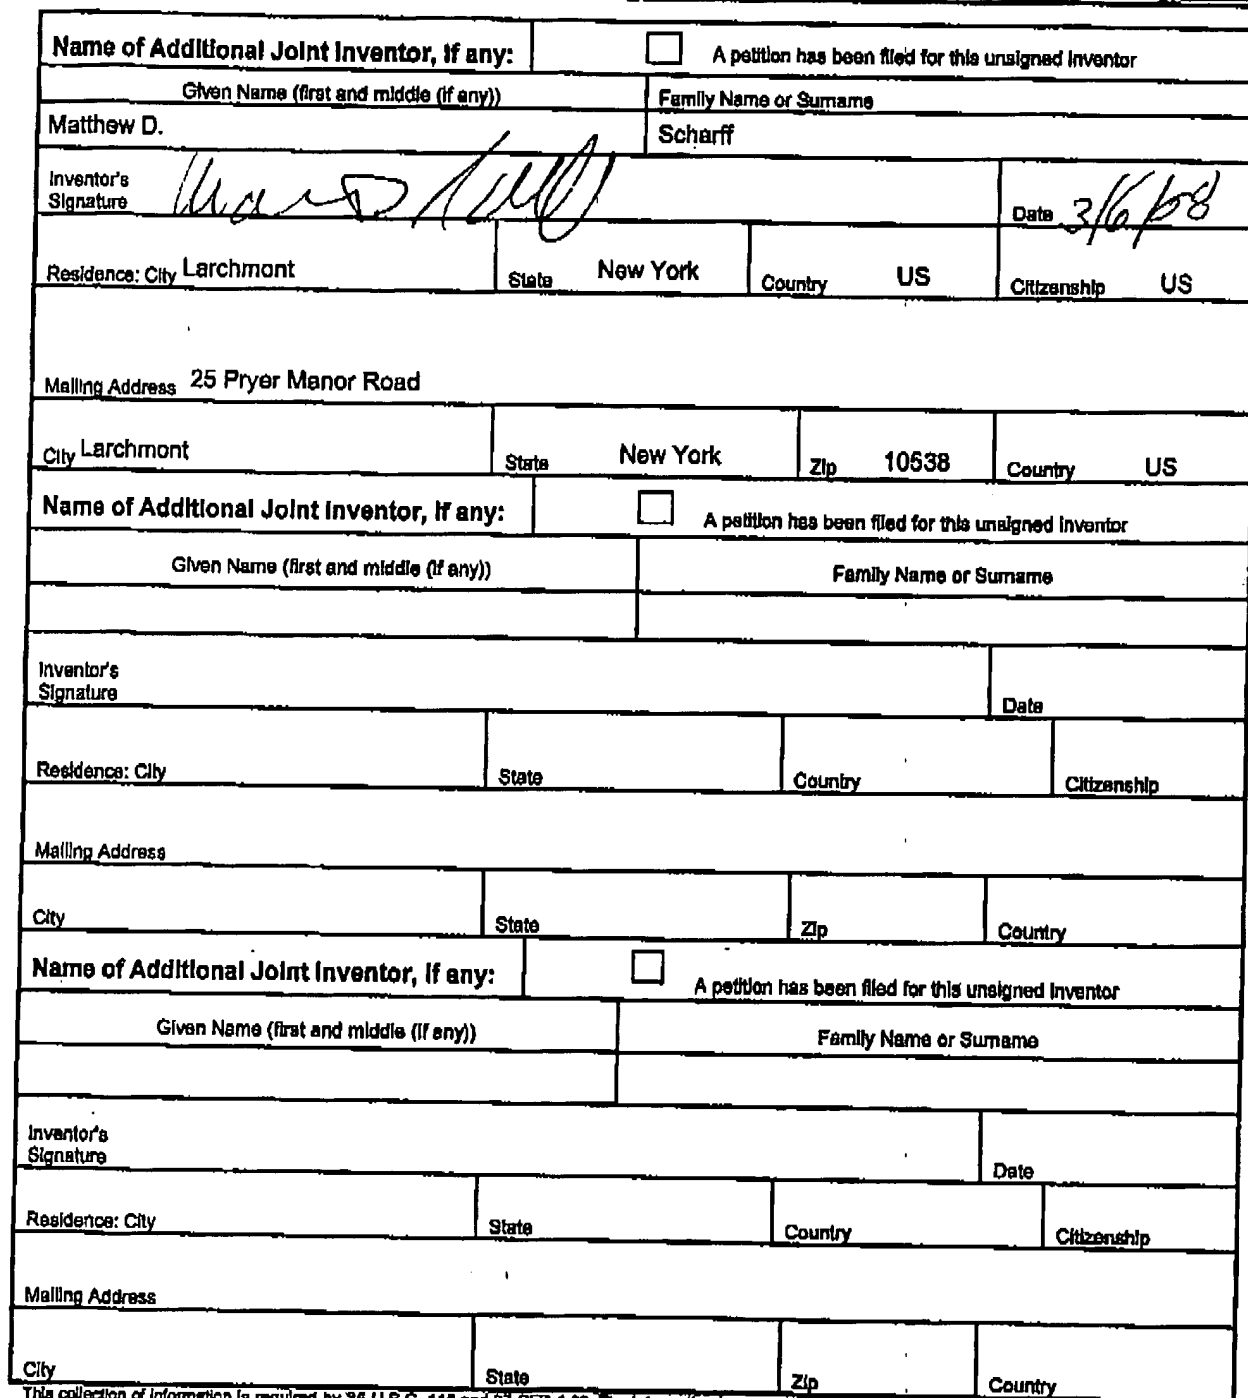 Name of Additional Joint Inventor, if any: A petition has been filed for this unsigned inventor
Given Name (first and middle (if any)) Family Name or Surname
Matthew D. Scharff
Inventor's
Signature Date 3/6/08
Residence: City Larchmont State New York Country US Citizenship US
Mailing Address 25 Pryer Manor Road
City Larchmont State New York Zip 10538 Country US
Name of Additional Joint Inventor, if any: A petition has been filed for this unsigned inventor
Given Name (first and middle (if any)) Family Name or Surname
Inventor's
Signature Date
Residence: City State Country Citizenship
Mailing Address
City State Zip Country
Name of Additional Joint Inventor, if any: A petition has been filed for this unsigned inventor
Given Name (first and middle (if any)) Family Name or Surname
Inventor's
Signature Date
Residence: City State Country Citizenship
Mailing Address
City State Zip Country
This collection of information is required by 35 U.S.C. 115 and